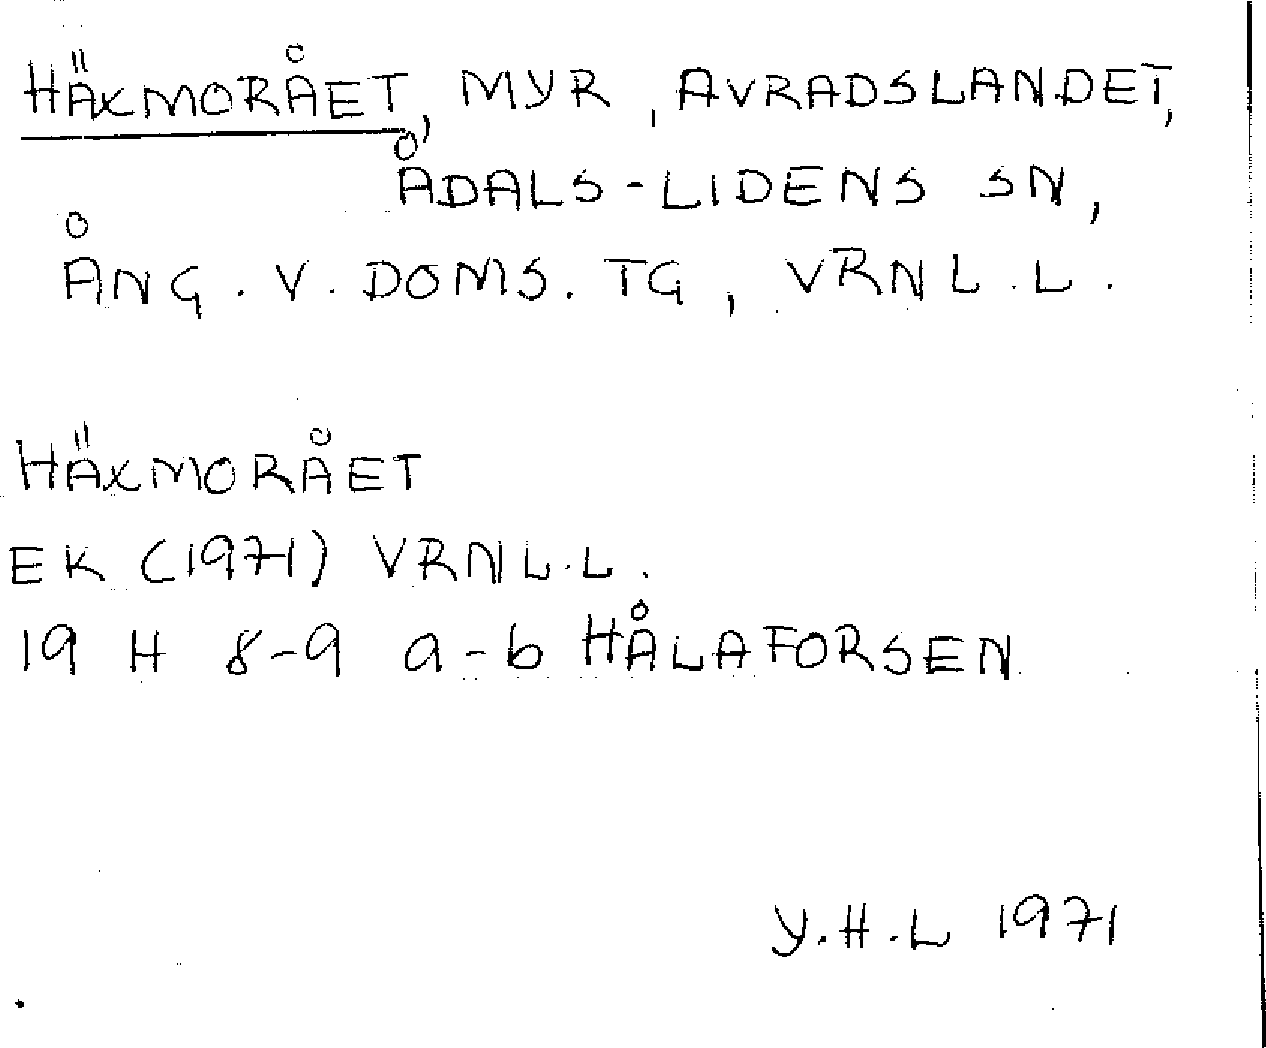 HÄXMORÅET, MYR, AVRADSLANDET,
ÅDALS-LIDENS SN,
ÅNG. V. DOMS. TG, VRNL.L.
HÄXMORÅET
EK (1971) VRNL.L.
19 H 8-9 a-b HÅLAFORSEN
Y.H.L 1971